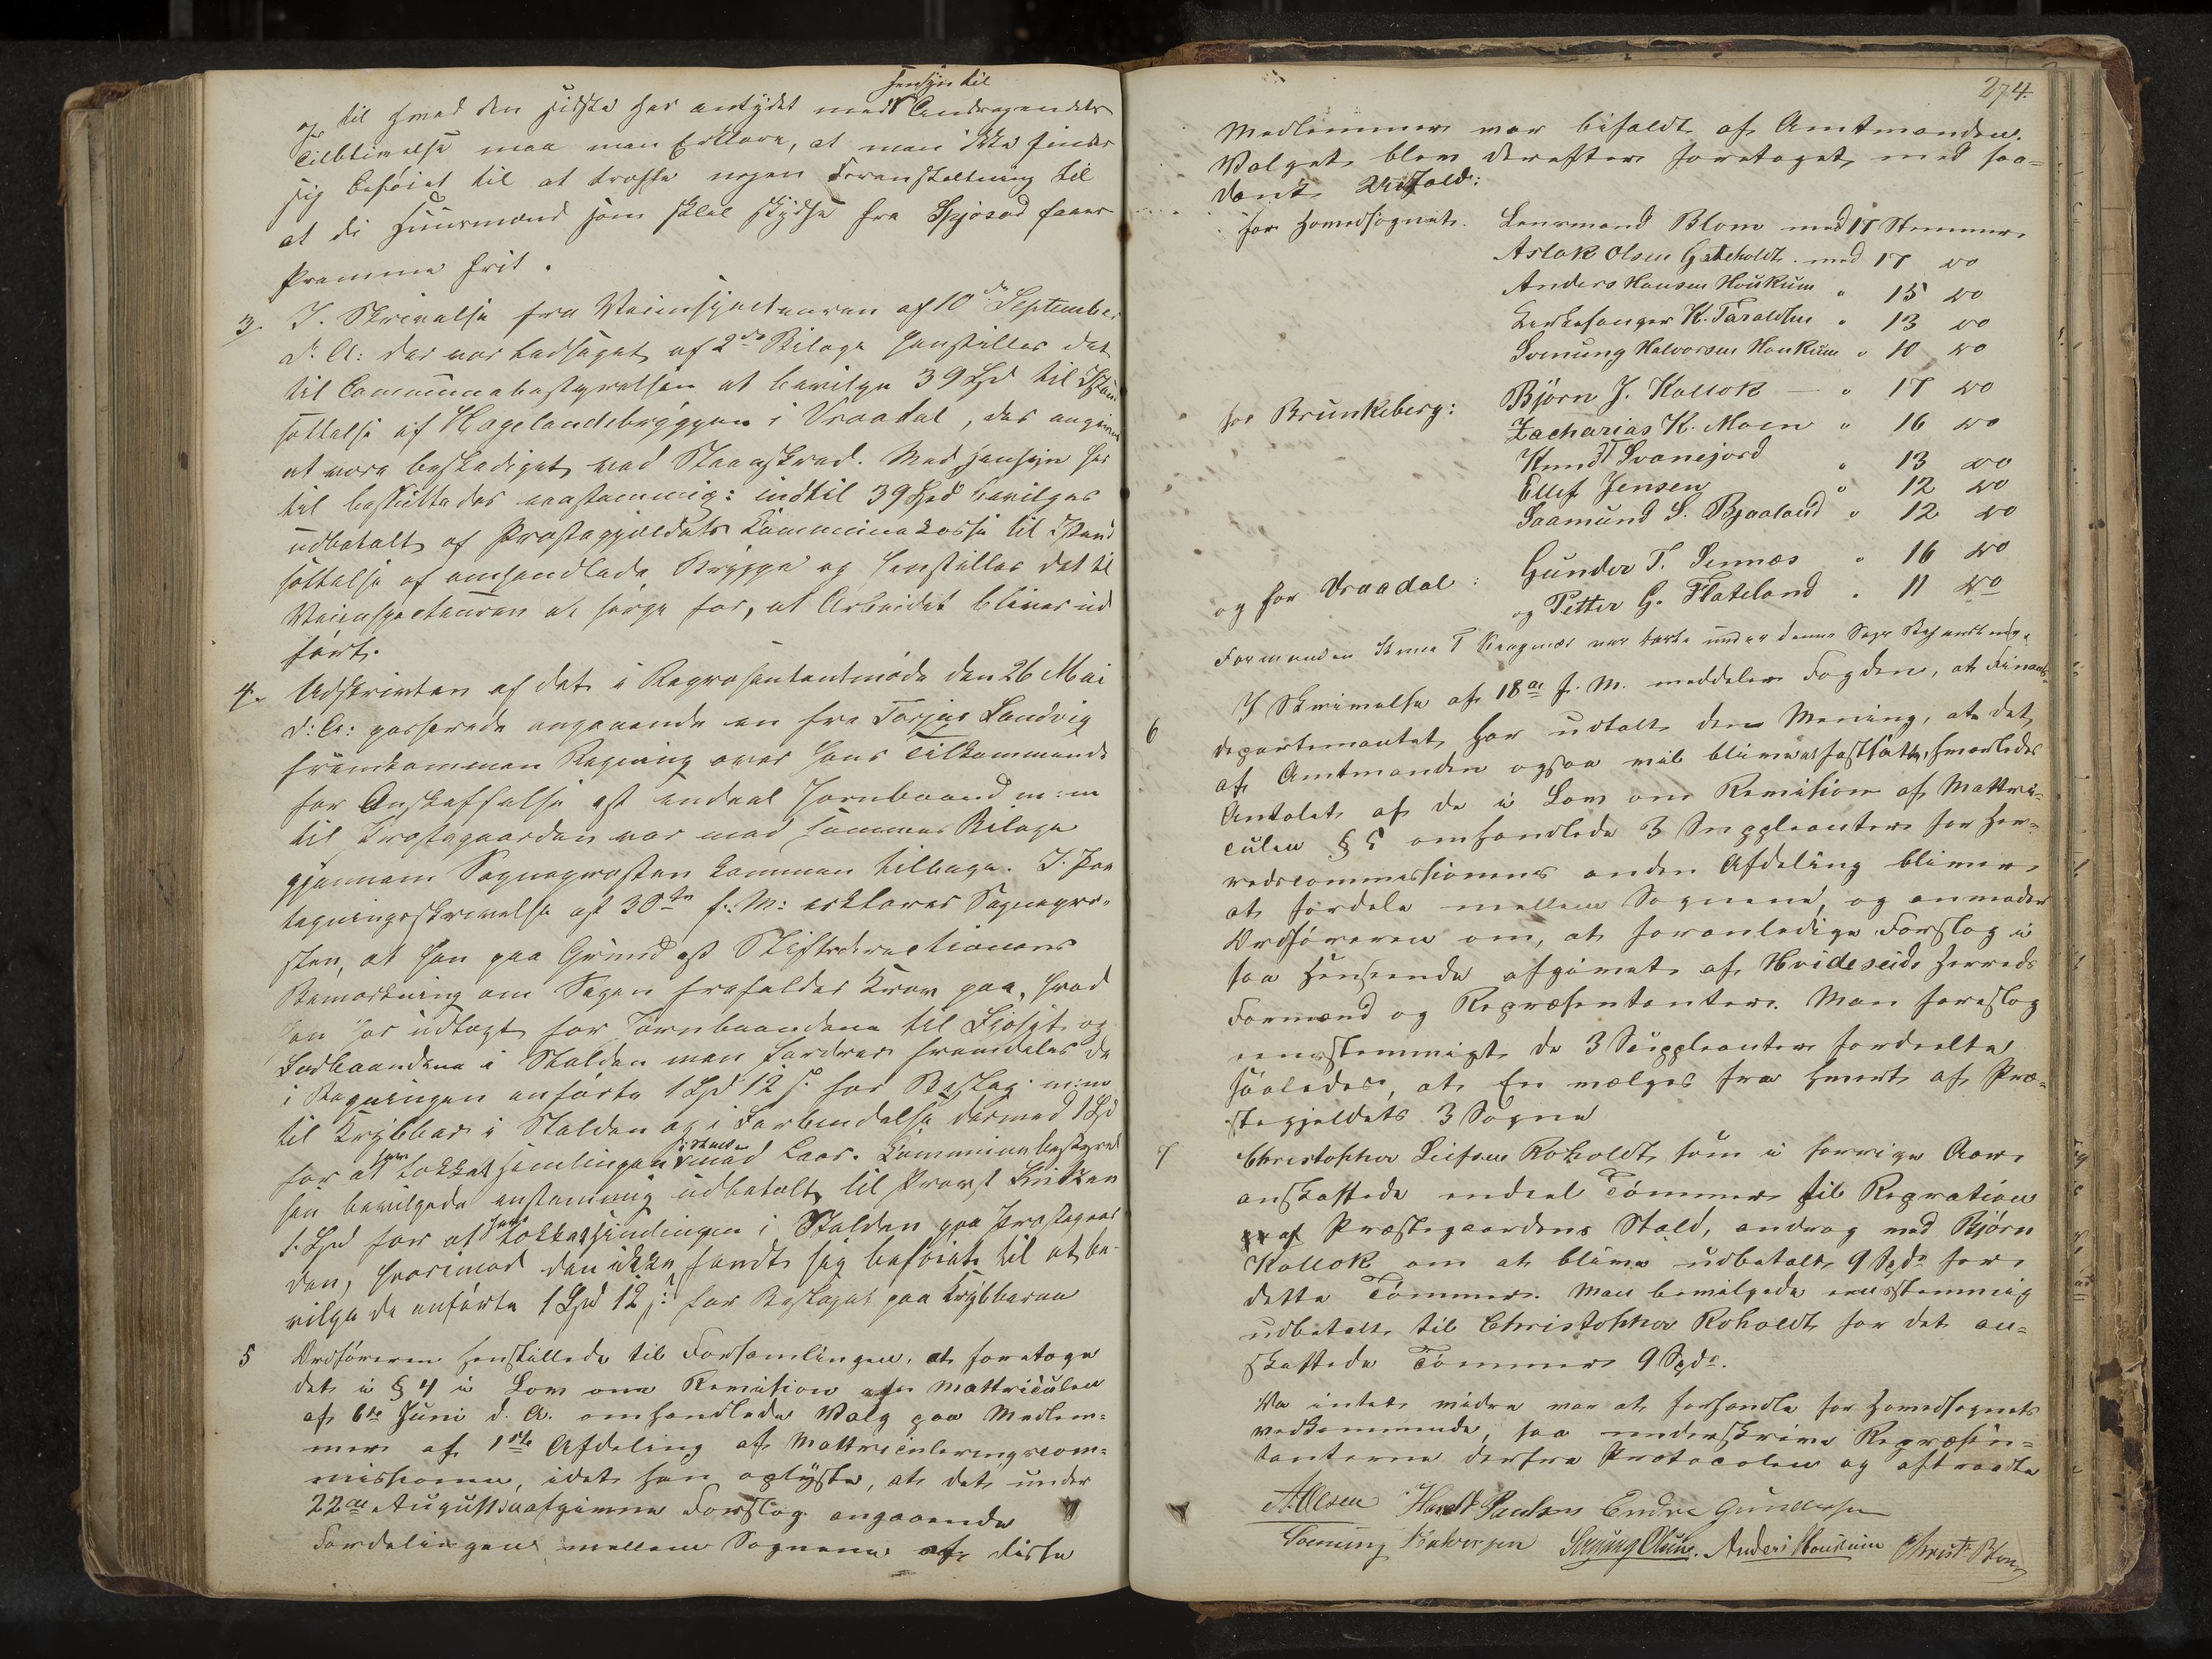 hensyn til
og til hvad den sidste har antydet med Andragendets
Tilblivelse maa man Erklære, at man ikke finder
sig beføiet til at træffe nogen Foranstaltning til
at de Huusmænd som skal skydse fra Spjosod faaer
Pramme frit.
3. I. Skrivelse fra Veiinspecteuren af 10de September
d: A: der var ledsaget af 2de Bilage henstilles det
til Communebestyrelsen at bevilge 39 Spd til Istand
sættelse af Hagelandsbryggen i Vraadal, der angives
at være beskadiget ved Steenskred. Med Hensyn her
til besluttedes eenstemmig: indtil 39 Spd bevilges
udbetalt af Præstegjældets Kommunekasse til Istand
sættelse af omhandlede Brygge og henstilles det til
Veiinspecteuren at sørge for, at Arbeidet bliver ud
ført.
4. Udskrivten af det i Repræsentantmøde den 26 Mai
d: A: passerede angaaende en fra Torjus Sandvig
fremkommen Regning over hans Tilkommende
for Anskaffelse af endeel Jernbaand m: m
til Præstegaarden var med sammes Bilage
gjennem Sogneprosten kommen tilbage. I Paa
tegningsskrivelse af 30te f: M: erklærer Sognepro-
sten, at han paa Grund af Stiftsdirectionens
Bemærkning om Sagen frafalder Krav paa, hvad
han har udlagt for Jernbaandene til Fjøset og
Ludbaandene i Stalden men fordrer fremdeles de
i Regningen anførte 1 Spd 12 s. for Beslag m: m
til Krybber i Stalden og i Forbindelse dermed 1 Spd
for at have lukket hemlingen i Stalden med Laas. Kommunebestyrel
sen bevilgede enstemmig udbetalt til Provst Knutzen
1. Spd for at have lukket hemlingen i Stalden paa Præstegaar
den, hvorimod den ikke fandt sig beføiet til at be-
vilge de anførte 1 Spd 12 s: for Beslaget paa Krybberne
5 Ordføreren henstillede til Forsamlingen, at foretage
det i § 4 i Lov om Revision af Mattriculen
af 6te Juni d. A. omhandlede Valg paa Medlem-
mer af 1ste Afdeling af Mattriculeringscom-
missionen, idet han oplyste, at det under
22de August afgivne Forslag angaaende
Fordelingen mellem Sognene af disse
274.
Medlemmer var bifaldt af Amtmanden.
Valget blev derefter foretaget med saa-
dant Udfald:
for Hovedsognet. Lensmand Blom med 17 Stemmer
Aslak Olsen Gateholdt med 17 do
Anders Hansen Houkum " 15 do
Kirkesanger K. Taraldsen " 13 do
Svenung Halvorsen Houkum " 10 do
for Brunkeberg: Bjørn J. Kollok — " 17 do
Zacharias K. Moen " 16 do
Knud T Svanejord " 13 do
Ellef Jensen " 12 do
Saamund S. Bjaaland " 12 do
og for Vraadal: Gunder T. Sennæs " 16 do
og Petter G. Flateland " 11 do
Formanden T var borte under denne Sags Behandling.
6 I Skrivelse af 18de f. M. meddeler Fogden, at Finants-
departementet har udtalt den Mening, at det
af Amtmanden ogsaa vil blive at fastsætte, hvorledes
Antallet af de i Lov om Revision af Mattri-
culen § 5 omhandlede 3 Suppleanter for Her-
redscommissionens anden Afdeling bliver
at fordele mellem Sognene, og anmoder
Ordføreren om, at foranledige Forslag i
saa Henseende afgivet af Hvideseids Herreds
Formænd og Repræsentanter. Man foreslog
eensstemmigt de 3 Suppleanter fordeelte
saaledes, at En vælges fra hvert af Præ-
stegjeldets 3 Sogne
7 Christopher Leifsen Roholdt, som i forrige Aar
anskaffede endeel Tømmer til Repration
af Præstegaardens Stald, androg ved Bjørn
Kollok om at blive udbetalt 9 Spd. for
dette Tømmer. Man bevilgede eensstemmig
udbetalt til Christopher Roholdt for det an-
skaffede Tømmer 9 Spd.
Da intet videre var at forhandle for Hovedsognets
vedkommende, saa underskrive Repræsen-
tanterne derfra Protocolen og aftraadte
A. Olsen Harald Paulsen Endre Gundersen
Svenung Halvorsen Svenung Olsen. Anders Houkum Christ. Blom